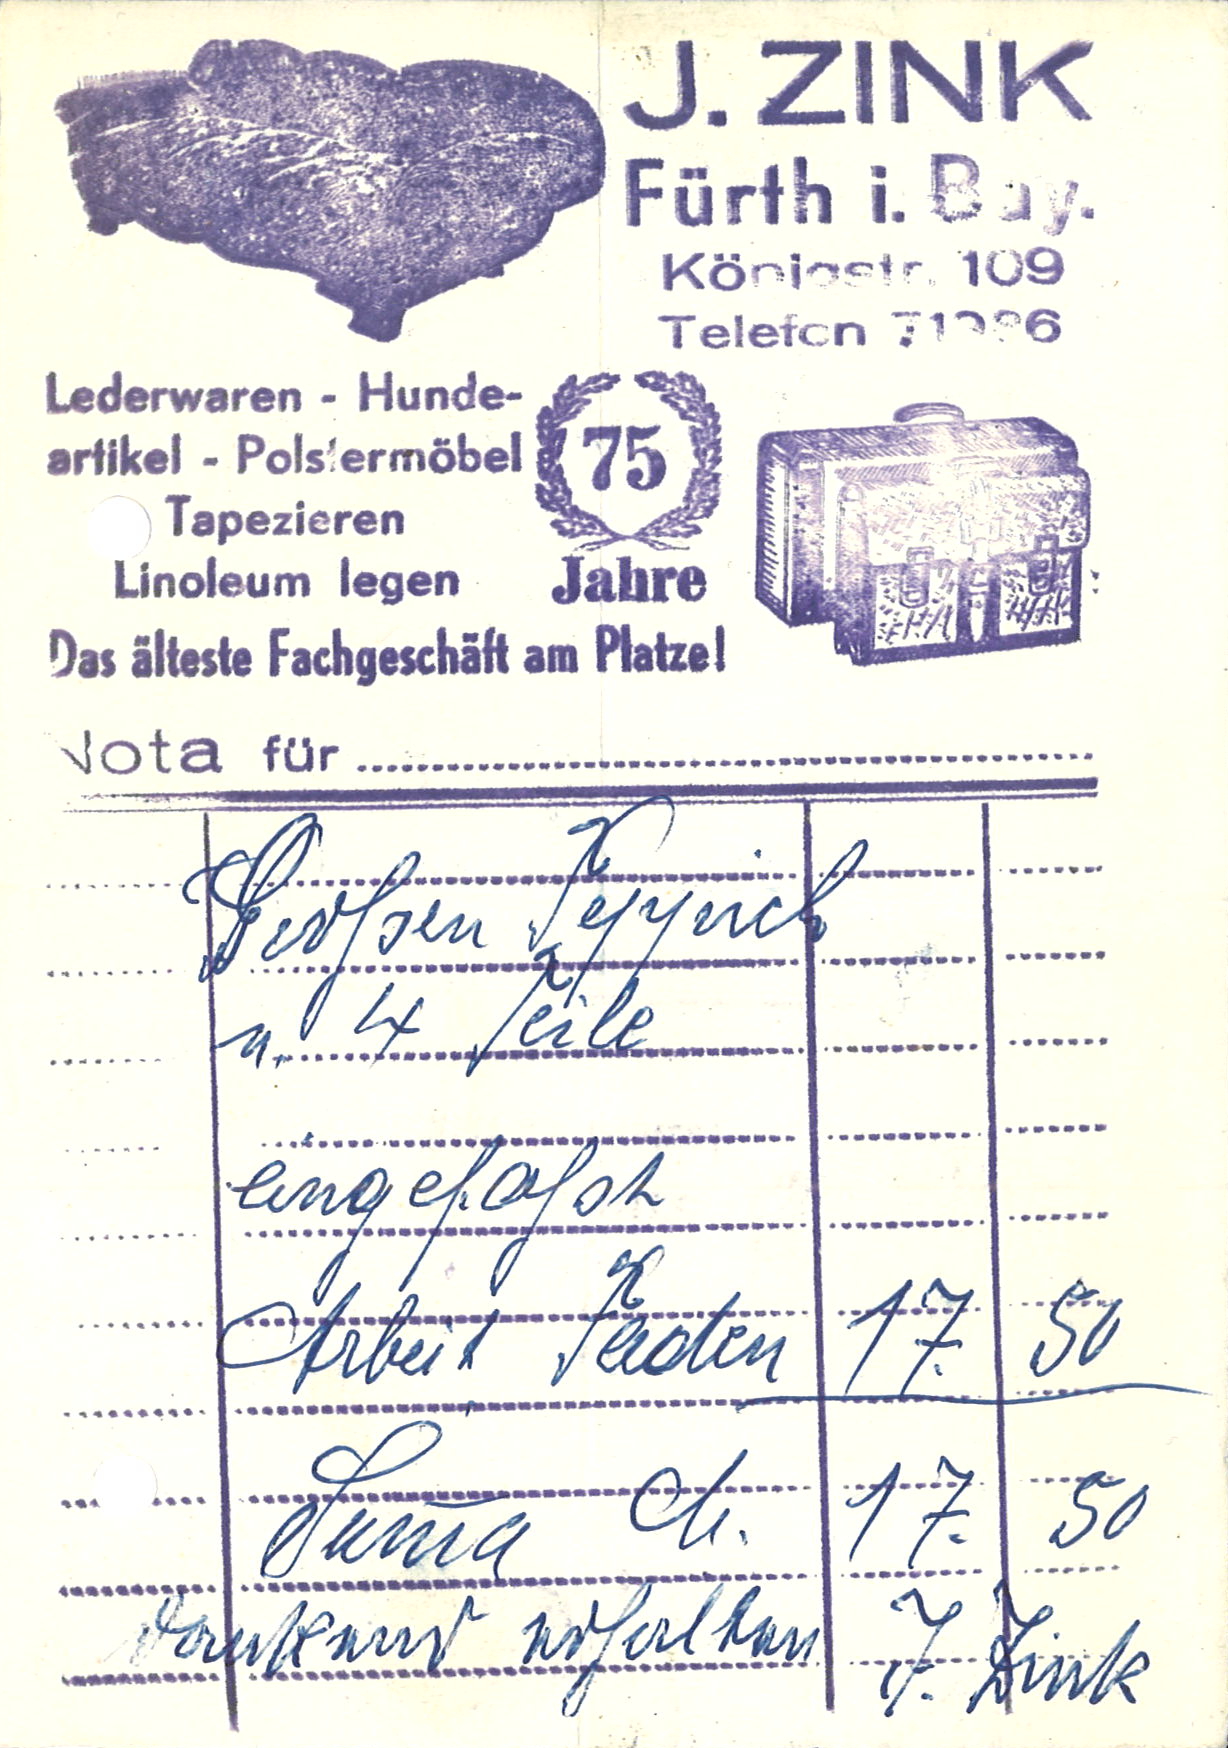 J. ZINK
Fürth i. Bay.
Königstr. 109
Telefon
Lederwaren - Hunde-
artikel - Polstermöbel
Tapezieren
Linoleum legen
75
Jahre
Das älteste Fachgeschäft am Platze!
Nota für
Großen Teppich
u. 4 Teile
eingefaßt
Arbeit Faden 17. 50
Suma 17. 50
dankend erhalten J. Zink